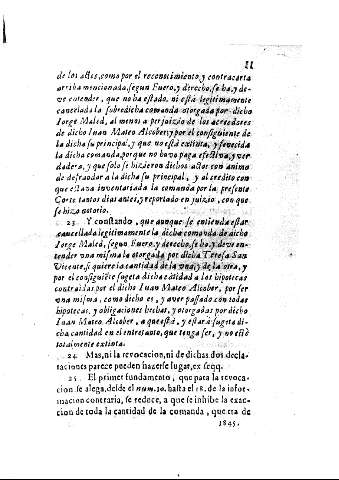 11
de los actes, como por el reconocimiento, y contracarta
arriba mencionada, segun Fuero, y derecho, se ha, y de-
ve entender, que no ha estado, ni està legitimamente
cancelada la sobredicha comanda otorgada por dicho
Jorge Maled, al menos a perjuizio de los acreedores
de dicho Iuan Mateo Alcober, y por el consiguiente de
la dicha su principal, y que no està extinta, y fenecida
la dicha comanda, porque no huvo paga efectiva, y ver-
dadera, y que solo se hizieron dichos actos con animo
de defraudar a la dicha su principal, y al credito con
que estava inventariada la comanda por la presente
Corte tantos dias antes, y reportado en juizio, con que
se hizo notorio.
23. Y constando, que aunque se entienda estar
cancellada legitimamente la dicha comanda de dicho
Jorge Maled, segun Fuero, y derecho, se ha, y deve en-
tender una misma la otorgada por dicha Teresa San
Vicente, si quiere la cantidad de la una, y de la otra, y
por el consiguiẽte sugeta dicha cãtidad a las hipotecas
contraidas por el dicho Iuan Mateo Alcober, por ser
una misma, como dicho es, y aver passado con todas
hipotecas, y obligaciones hechas, y otorgadas por dicho
Iuan Mateo Alcober, a que està, y estarà sugeta di-
cha cantidad en el interestanto, que tenga ser, y no estè
totalmente extinta.
24. Mas, ni la revocacion, ni de dichas dos decla-
raciones parece pueden hazerse lugar, ex seqq.
25. El primer fundamento, que para la revoca-
cion se alega, desde el num. 10. hasta el 18. de la infor-
macion contraria, se reduce, a que se inhibe la exac-
cion de toda la cantidad de la comanda, que era de
1845.